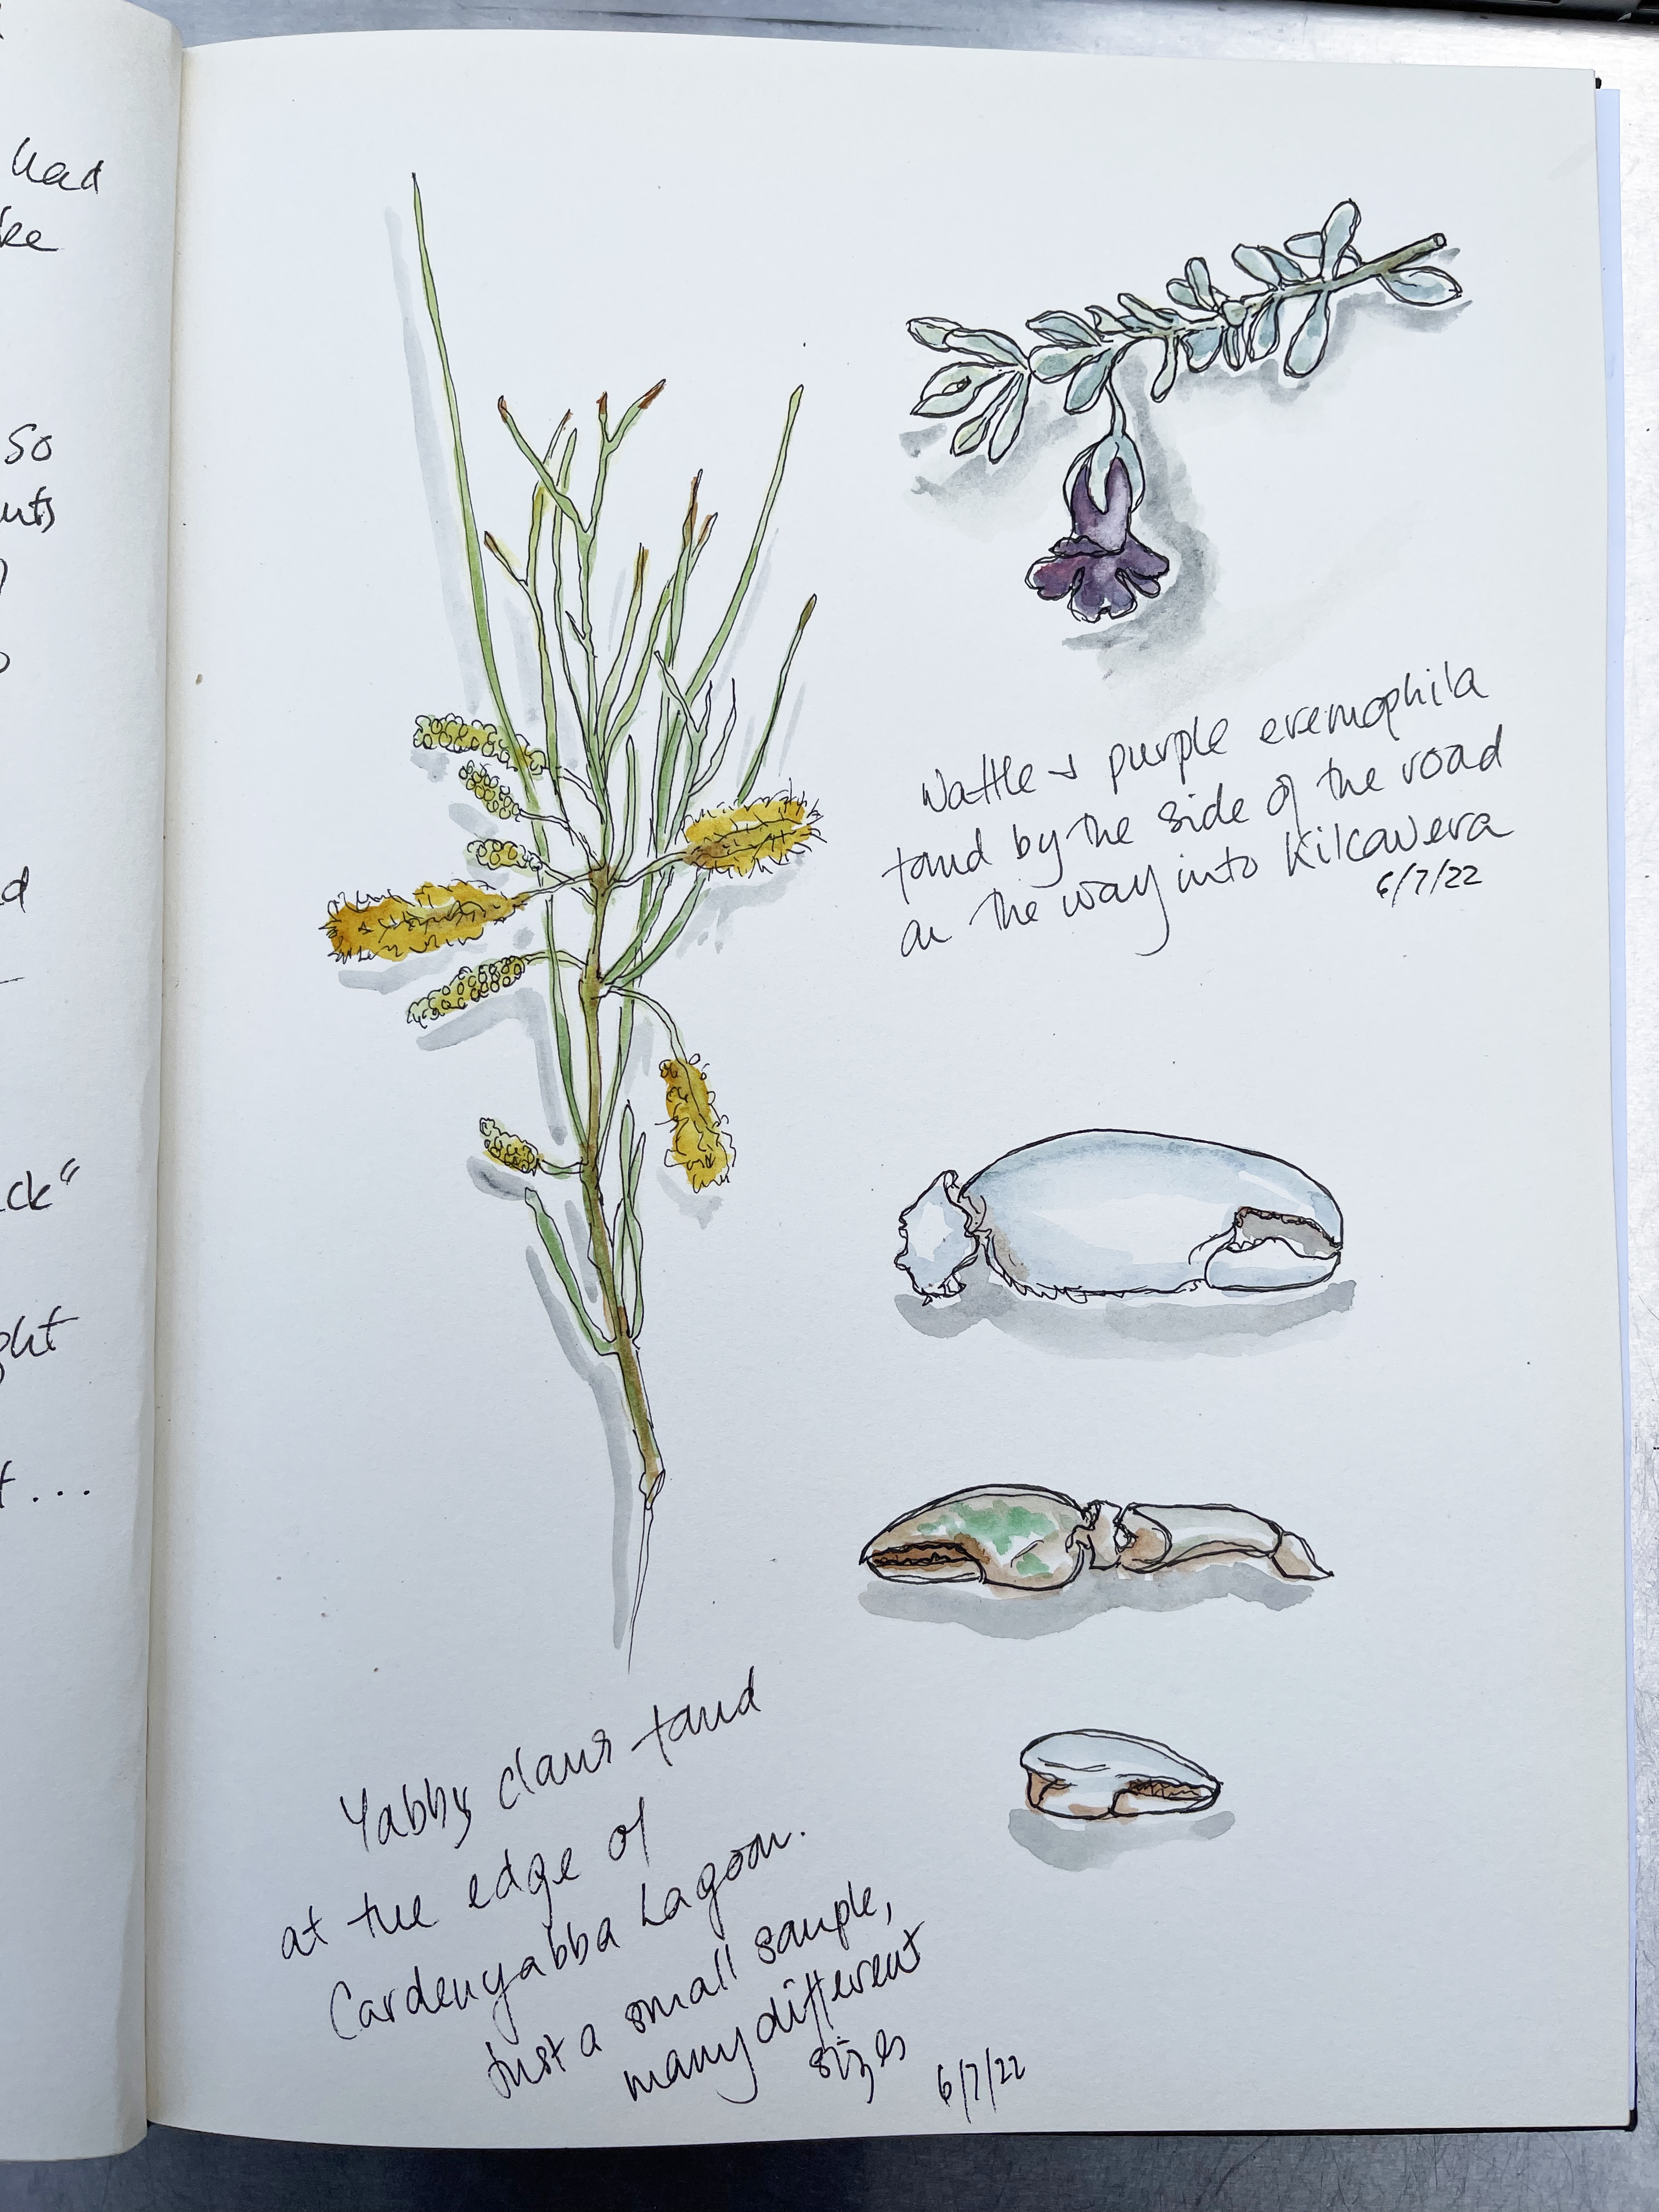 had
ke
so
uts
d
ck"
ght
t...
Wattle & purple eremophila
found by the side of the road
on the way into Kilcowera
6/7/22
Yabby claws found
at the edge of
Cardenyabba Lagoon.
Just a small sample,
many different
sizes
6/7/22